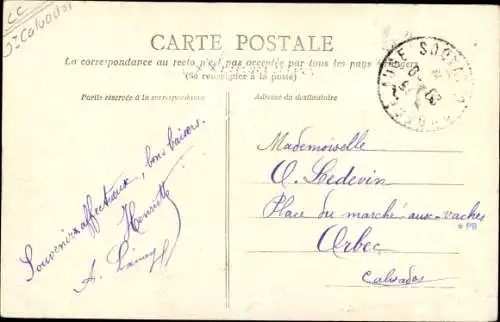 CC
Calvados
CARTE POSTALE
La correspondance au recto n'est pas acceptée par tous les pays étrangers
(Se renseigner à la poste)
Partie réservée à la correspondance
Adresse du destinataire
Souvenirs affectueux, bons baisers.
Henriette
Mademoiselle
O. Ledevin
Place du marché aux vaches
*PB
Orbec
Calvados